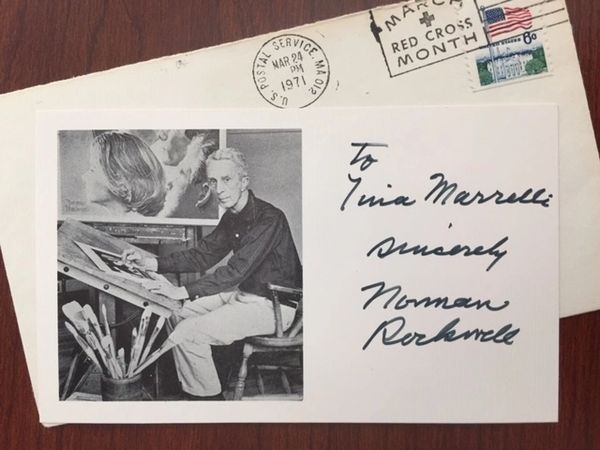 U.S. POSTAL SERVICE, MA 012
MAR 24
PM
1971
MARCH
RED CROSS
MONTH
6c
To
Tina Marrelli
Sincerely
Norman
Rockwell